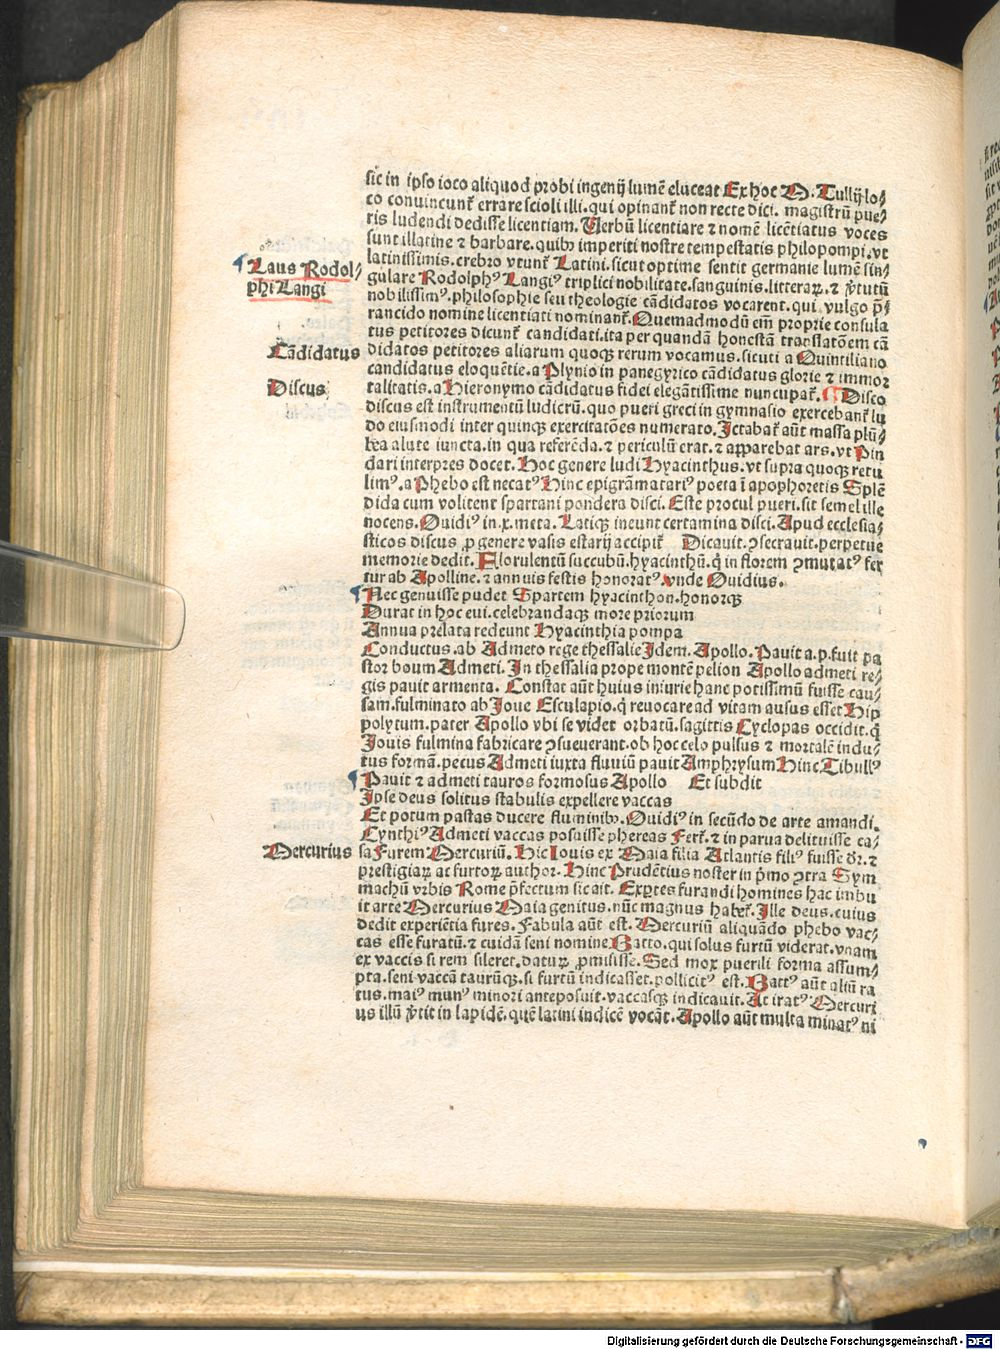 sic in ipso ioco aliquod probi ingenij lumē eluceat Ex hoc M. Tullij lo⸗
co convincunt᷑ errare scioli illi. qui opinant᷑ non recte dici. magistrū pue⸗
ris ludendi dedisse licentiam. Uerbū licentiare ⁊ nomē licētiatus voces
sunt illatine ⁊ barbare. quibꝰ imperiti nostre tempestatis philopompi. vt
latinissimis. crebro vtunt᷑ Latini. sicut optime sentit germanie lumē sin⸗
gulare Rodolphꝰ Langiꝰ triplici nobilitate. sanguinis. litteraꝝ. ⁊ v̓tutū
nobilissimꝰ. philosophie seu theologie cādidatos vocarent. qui vulgo p̄⸗
rancido nomine licentiati nominant᷑. Quemadmodū eīm proprie consula
tus petitores dicunt᷑ candidati. ita per quandā honestā translatōem cā
didatos petitores aliarum quoqꝫ rerum vocamus. sicuti a Quintiliano
candidatus eloquētie. a Plynio in panegyrico cādidatus glorie ⁊ immor
talitatis. a Hieronymo cādidatus fidei elegātissime nuncupat᷑. ¶ Disco
discus est instrumentū ludicrū. quo pueri greci in gymnasio exercebant᷑ lu
do eiusmodi inter quinqꝫ exercitatōes numerato. Jctabat᷑ aūt massa plū⸗
bea alute iuncta. in qua referēda. ⁊ periculū erat. ⁊ apparebat ars. vt Pin
dari interpres docet. Hoc genere ludi Hyacinthus. vt supra quoqꝫ retu
limꝰ. a Phebo est necatꝰ Hinc epigrāmatariꝰ poeta ī apophoretis Splē
dida cum volitent spartani pondera disci. Este procul pueri. sit semel ille
nocens. Ouidiꝰ in .x. meta. Latiqꝫ ineunt certamina disci. Apud ecclesia⸗
sticos discus ꝓ genere vasis estarij accipit᷑ Dicauit. ꝯsecrauit. perpetue
memorie dedit. Florulentū succubū. hyacinthū. q̇ in florem ꝯmutatꝰ fer
tur ab Apolline. ⁊ annuis festis honoratꝰ. vnde Ouidius.
Nec genuisse pudet Spartem hyacinthon. honorqꝫ
Durat in hoc eui. celebrandaqꝫ more priorum
Annua prelata redeunt Hyacinthia pompa
Conductus. ab Admeto rege thessalie Idem. Apollo. Pauit .a. p. fuit pa
stor boum Admeti. In thessalia prope montē pelion Apollo admeti re⸗
gis pauit armenta. Constat aūt huius iniurie hanc potissimū fuisse cau⸗
sam. fulminato ab Joue Esculapio. q̇ reuocare ad vitam ausus esset Hip
polytum. pater Apollo vbi se videt orbatū. sagittis Cyclopas occidit. q̇
Jouis fulmina fabricare ꝯsueuerant. ob hoc celo pulsus ⁊ mortalē indu⸗
tus formā. pecus Admeti iuxta fluuiū pauit Amphrysum Hinc Tibullꝰ
Pauit ⁊ admeti tauros formosus Apollo Et subdit
Ipse deus solitus stabulis expellere vaccas
Et potum pastas ducere fluminibꝰ. Ouidiꝰ in secūdo de arte amandi.
Cynthiꝰ Admeti vaccas posuisse phereas Fert᷑. ⁊ in parua delituisse ca⸗
sa Furem Mercuriū. Hic Iouis ex Maia filia Atlantis filiꝰ fuisse dr̄. ⁊
prestigiaꝝ ac furtoꝝ author. Hinc Prudētius noster in p̓mo ꝯtra Sym
machū vrbis Rome p̄fectum sic ait. Exptes furandi homines hac imbu
it arte Mercurius Maia genitus. nūc magnus habet᷑. Ille deus. cuius
dedit experiētia fures. Fabula aūt est. Mercuriū aliquādo phebo vac⸗
cas esse furatū. ⁊ cuidā seni nomine Batto. qui solus furtū viderat. vnam
ex vaccis si rem sileret. daturū ꝓmisisse. Sed mox puerili forma assum⸗
pta. seni vaccā taurūqꝫ. si furtū indicasset. pollicitꝰ est. Battꝰ aūt aliū ra
tus. maiꝰ munꝰ minori anteposuit. vaccasqꝫ indicauit. At iratꝰ Mercuri
us illū v̓tit in lapidē. quē latini indicē vocāt. Apollo aūt multa minatꝰ ni
Laus Rodol⸗
phi Langi
Cādidatus
Discus
Mercurius
Digitalisierung gefördert durch die Deutsche Forschungsgemeinschaft - DFG